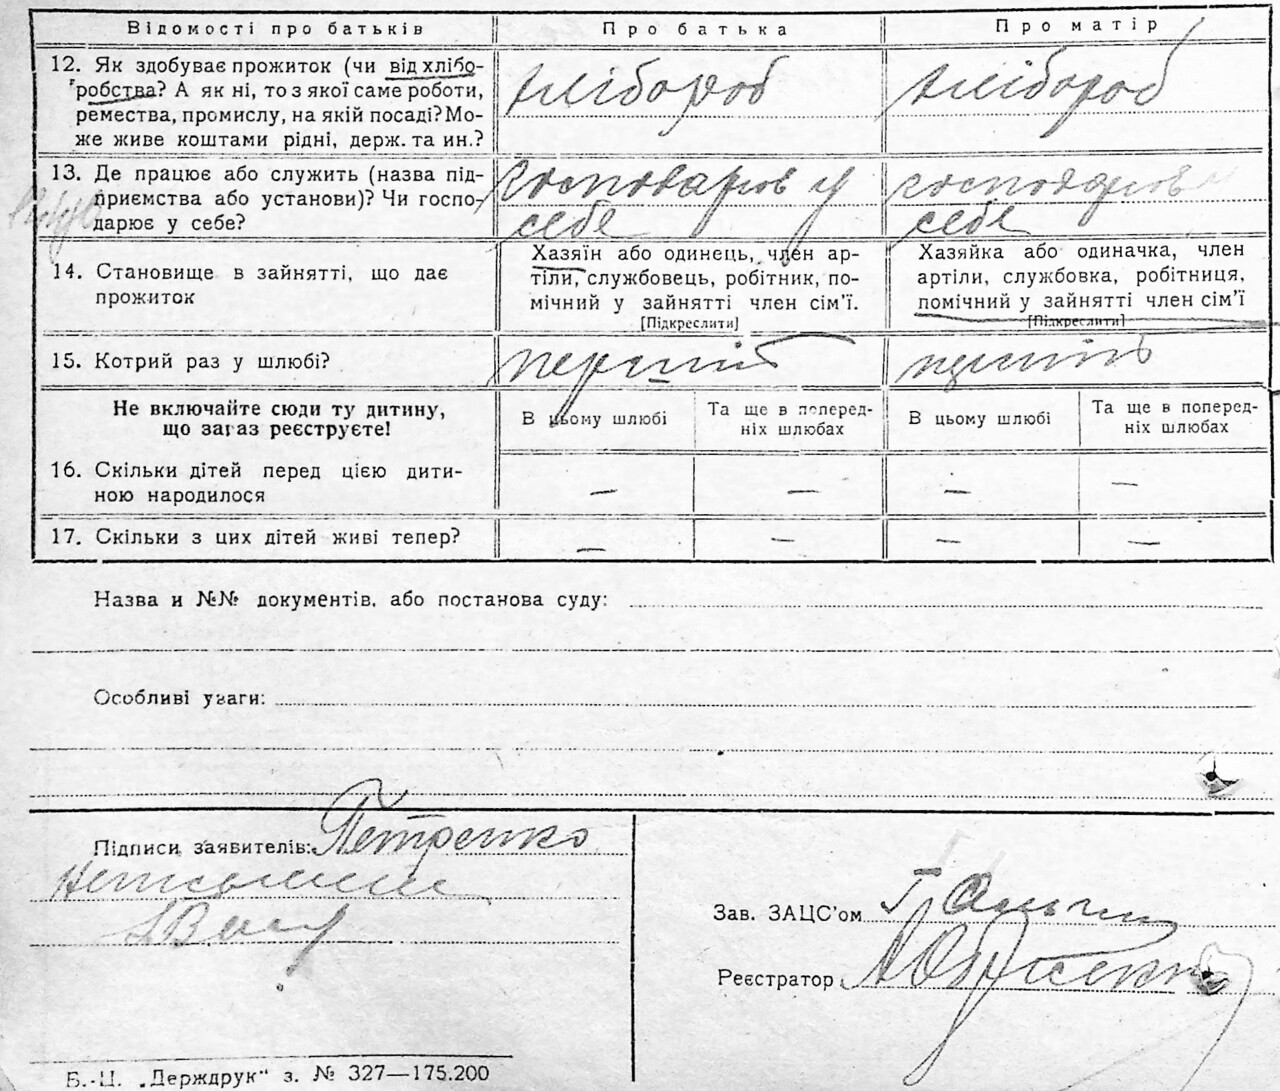 Відомості про батьків
Про батька
Про матір
12. Як здобуває прожиток (чи від хлібо-
робства? А як ні, то з якої саме роботи,
ремества, промислу, на якій посаді? Мо-
же живе коштами рідні, держ. та ин.?
хлібороб
хлібороб
13. Де працює або служить (назва під-
приємства або установи)? Чи госпо-
дарює у себе?
господарює у
себе
господарює
себе
14. Становище в зайнятті, що дає
прожиток
Хазяїн або одинець, член ар-
тіли, службовець, робітник, по-
мічний у зайнятті член сім’ї.
[Підкреслити]
Хазяйка або одиначка, член
артіли, службовка, робітниця,
помічний у зайнятті член сім’ї
[Підкреслити]
15. Котрий раз у шлюбі?
перший
Не включайте сюди ту дитину,
що зараз реєструєте!
В цьому шлюбі
Та ще в поперед-
ніх шлюбах
В цьому шлюбі
Та ще в поперед-
ніх шлюбах
16. Скільки дітей перед цією дити-
ною народилося
— — — —
17. Скільки з цих дітей живі тепер?
— — — —
Назва и №№ документів, або постанова суду:
Особливі уваги:
Підписи заявителів: Петренко
Зав. ЗАЦС’ом
Реєстратор
Б.-Ц. „Держдрук“ з. № 327—175.200